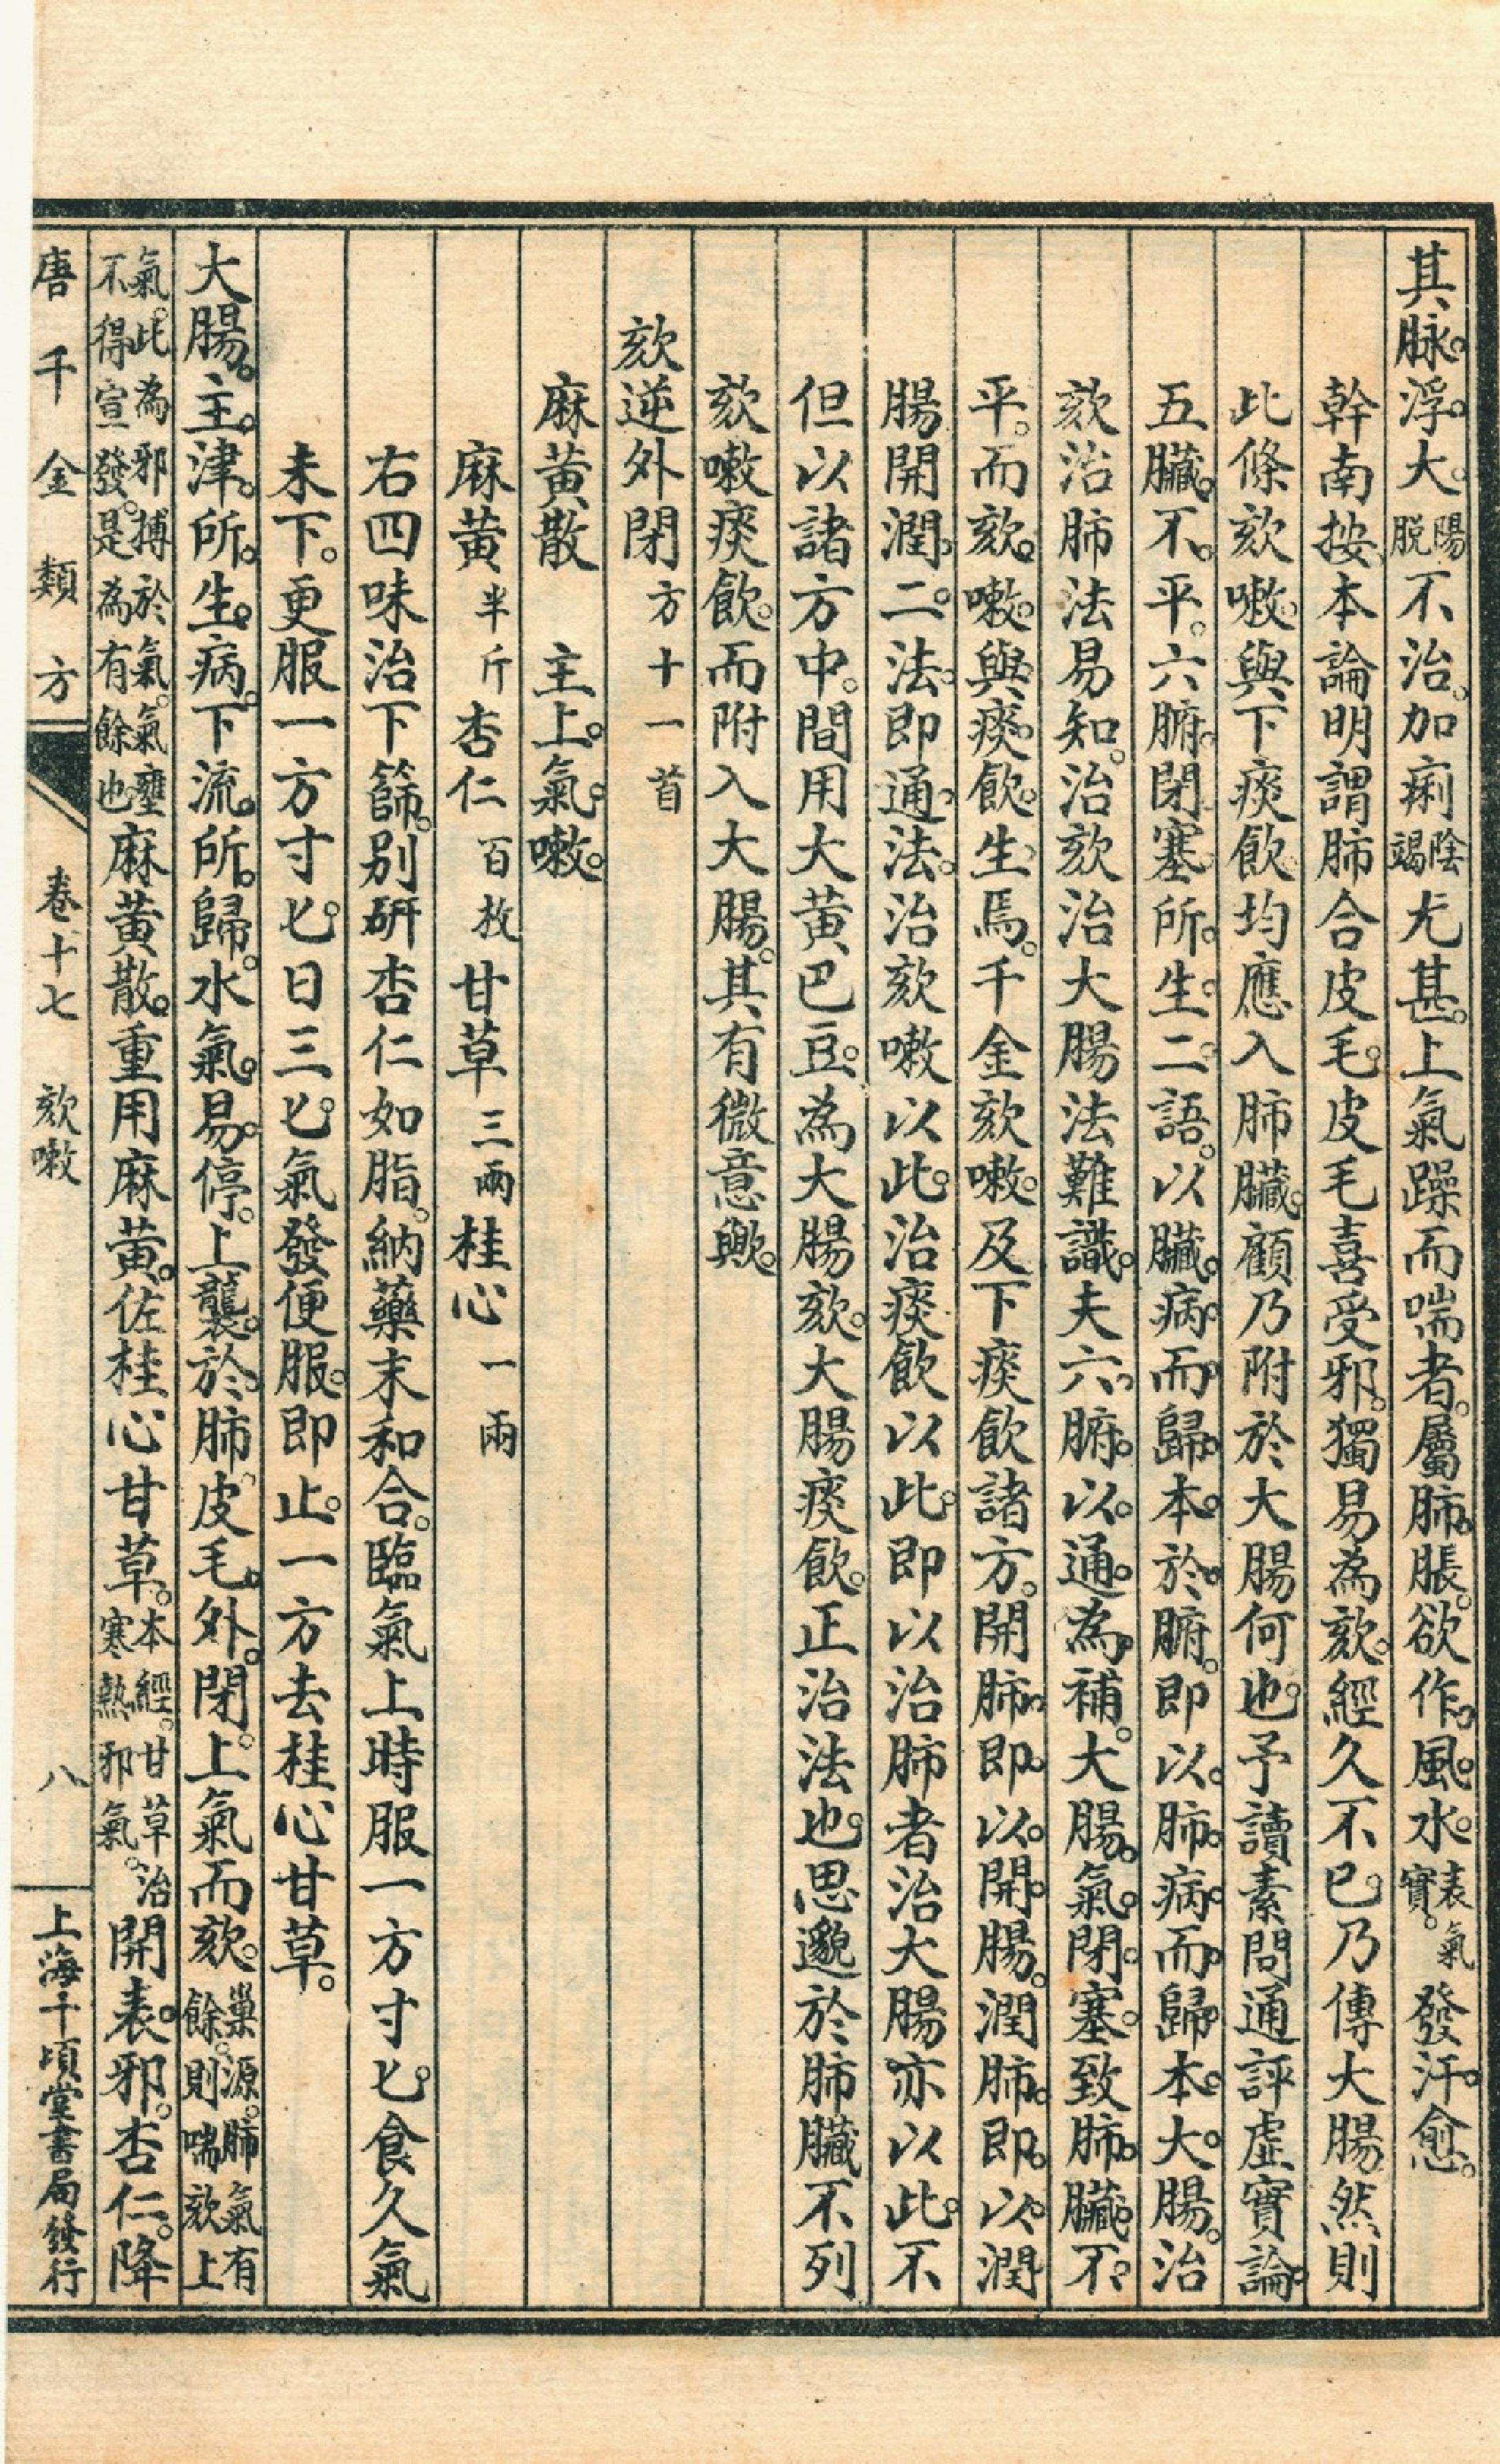 其脉浮大。陽脱不治。加痢陰竭尤甚。上氣躁而喘者。屬肺脹。欲作風水。表氣實。發汗愈。
幹南按本論明謂肺合皮毛。皮毛喜受邪。獨易為欬。經久不已。乃傳大腸然則
此條欬嗽。與下痰飲均應入肺臟。顧乃附於大腸何也。予讀素問通評虛實論。
五臟不平。六腑閉塞所生二語。以臟病而歸本於腑。即以肺病而歸本大腸。治
欬治肺法易知。治欬治大腸法難識。夫六腑以通為補。大腸氣閉塞致肺臟不
平。而欬嗽與痰飲生焉。千金欬嗽及下痰飲諸方。開肺即以開腸。潤肺即以潤
腸開潤二法即通法。治欬嗽以此。治痰飲以此。即以治肺者治大腸亦以此。不
但以諸方中。間用大黃巴豆。為大腸欬。大腸痰飲。正治法也。思邈於肺臟不列
欬嗽痰飲。而附入大腸。其有微意歟。
欬逆外閉方十一首
麻黃散　主上氣嗽。
麻黃半斤杏仁百枚甘草三兩桂心一兩
右四味治下篩。别研杏仁如脂。納藥末和合。臨氣上時服一方寸匕。食久氣
未下。更服一方寸匕。日三匕。氣發便服。即止。一方去桂心甘草。
大腸。主津所生病。下流所歸。水氣易停。上襲於肺。皮毛外閉。上氣而欬。巢源。肺氣有餘。則喘欬上
氣。此為邪搏於氣。氣壅不得宣發。是為有餘也麻黃散。重用麻黃。佐桂心甘草。本經。甘草治寒熱邪氣。開表邪。杏仁。降
唐千金類方　卷十七　欬嗽　八　上海千頃堂書局發行